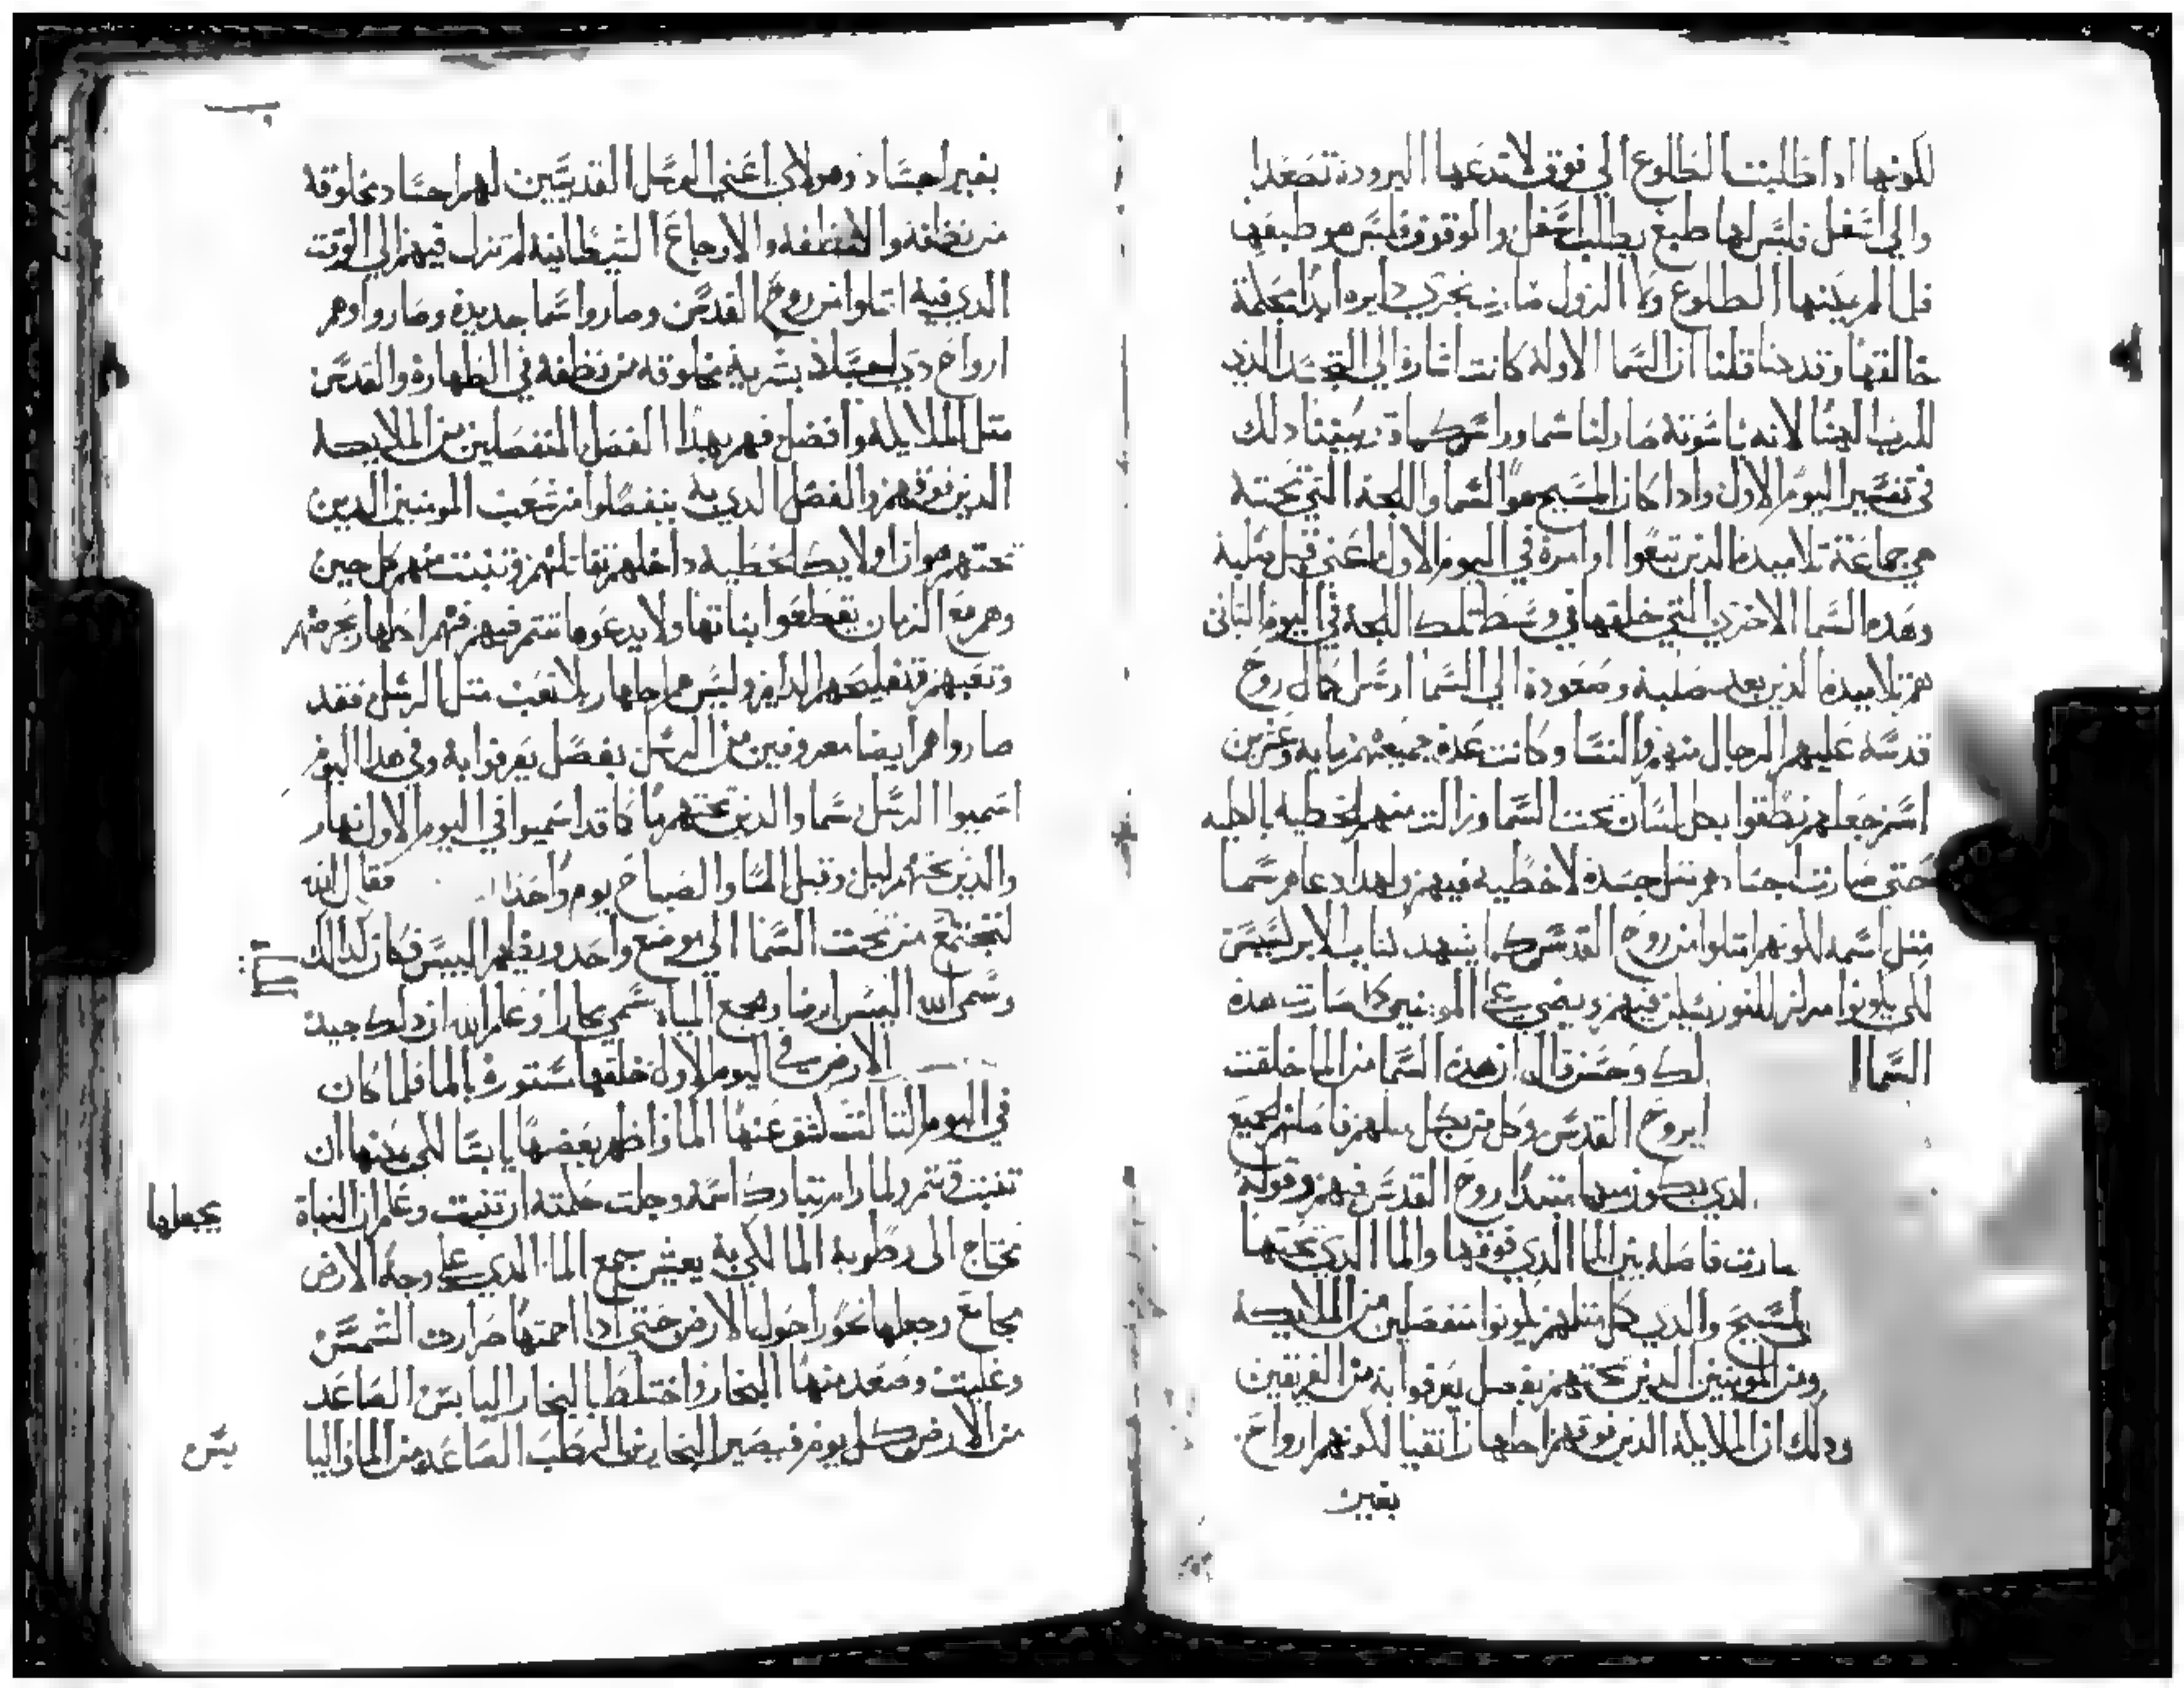 لكونها ادا طلبت الطلوع الي فوق لا تدعها البرودة تصعد
والي اسفل فليس لها طبع يطلب اسفل والوقوف فليس هو طبعها
فلما لم يمكنها الطلوع ولا النزول صارت تجري دايره ابدا بحكمة
خالقها وقد منا قلنا ان السما الاوله كانت اشارة الي الجسد الذي
للرب الهنا لانه بناسوته صار لنا سما وراس كما قد سبقنا دلك
في تفسير اليوم الاول وادا كان المسيح هو السما واللجة التي تحته
هي جماعة تلاميده الدين تبعوا اوامره في اليوم الاول اعني قبل صلبه
وهده السما الاخري التي خلقها في وسط تلك اللجة في اليوم التاني
هم تلاميده الدين بعد صلبه وصعوده الي السما ارسل كمال روح
قدسه عليهم الرجال منهم والنسا وكانت عدة جميعهم مايه وعشرين
اسم جعلهم نطقوا بكل لسان تحت السما وزالت منهم الخطيه بالكليه
حتي صارت اجسادهم متل جسده لا خطيه فيهم ولهدا دعاهم سما
متل اسمه لكونهم امتلوا من روح القدس كما يشهد كتاب الابركسيس
لكي يكونوا مراكز للنور فيهم ويضي علي المومنين كما صارت هده
السما لك وحسن قال ان هده السما من الما خلقت
بروح القدس وكل من متلهم فاملتهم الجميع
لدي يكون منها مبتدا روح القدس فيهم وقوله
صارت فاصله بين الما الدي فوقها والما الدي تحتها
المسيح والدي كل متلهم ليكونوا منفصلين من الملايكة
ومن المومنين الدين تحتهم بفصل يعرفوا به من الفريقين
ودلك ان الملايكة الدين فوقهم اطهار اتقيا لكونهم ارواح
بغير
بغير اجساد وهولاي اعني الرسل القديسين لهم اجساد مخلوقة
من نطفه والنطفه والاوجاع الشيطانية لم تزل فيهم الي الوقت
الدي فيه امتلوا من روح القدس وصاروا سما جديدة وصاروا وهم
ارواح دي اجساد بشرية مخلوقه من نطفه في الطهارة والقدس
متل الملايكة وافضل فهم بهدا الفضل المنفصلين من الملايكة
الدين فوقهم والفصل الدي به ينفصلوا من شعب المومنين الدين
تحتهم هو ان اوليك الخطيه داخلهم تقاتلهم وتنبت منهم كل حين
وهم مع الزمان يقطعوا نباتها ولا يدعوها تتم فيهم فهم اطهار
وتعبهم الدايم وليس هم اطهار بلا تعب متل الرسل فقد
صاروا هم ايضا معروفين من الرسل بفصل يعرفوا به وفي هدا اليوم
اسميوا الرسل سما والدين تحتهم ما كما قد اسميوا في اليوم الاول نهار
والدين تحتهم ليل وقبل المسا والصباح يوم واحدا فقال الله
لتجتمع من تحت السما الي موضع واحد ويظهر اليبس فكان كدالك
وسمي الله اليبس ارضا ومجمع المياه سمي بحارا وعلم الله ان دلك جيد
الارض في اليوم الاول خلقها مستورة بالما فلما كان
في اليوم التالت كشف عنها الما واظهر بعضها يابسا لكي يمكنها ان
تنبت وتتمر ولما امر تبارك اسمه وجلت حكمته ان تنبت وعلم ان النباة
يجعلها
تحتاج الي رطوبة الما لكي به يعيش جمع الما الدي علي وجه الارض
مجامع وجعلها بحورا حوليا الارض حتي ادا احمتها حرارت الشمس
وغليت وصعد منها البخار واختلط بالبخار اليابس الصاعد
من الارض كل يوم فيصير البخار الرطب الصاعد من الما واليا
بس